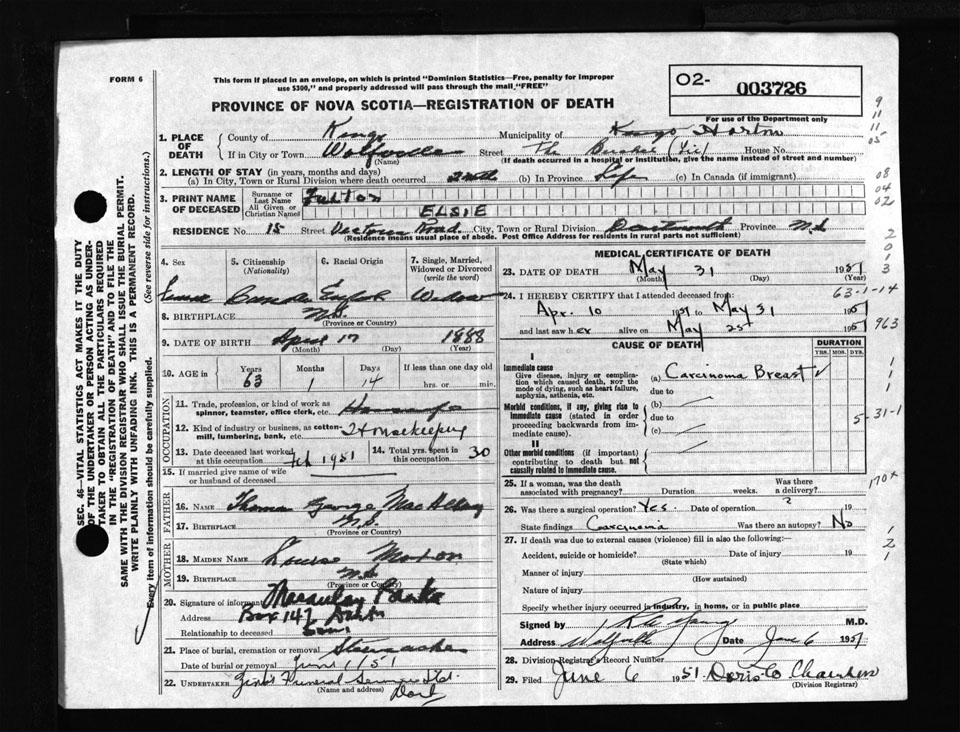 FORM 6
This form if placed in an envelope, on which is printed "Dominion Statistics—Free, penalty for improper
use $300," and properly addressed will pass through the mail "FREE"
PROVINCE OF NOVA SCOTIA—REGISTRATION OF DEATH
O2- 003726
For use of the Department only
1. PLACE OF DEATH
County of Kings Municipality of Kings Horton
If in City or Town Wolfville Street The House No.
(Name) (If death occurred in a hospital or institution, give the name instead of street and number)
2. LENGTH OF STAY (in years, months and days)
(a) In City, Town or Rural Division where death occurred (b) In Province Life (c) In Canada (if immigrant)
3. PRINT NAME OF DECEASED
Surname or Last Name
All Given or Christian Names ELSIE
RESIDENCE No. 15 Street Victoria Road City, Town or Rural Division Dartmouth Province N.S.
(Residence means usual place of abode. Post Office Address for residents in rural parts not sufficient)
4. Sex
5. Citizenship (Nationality)
6. Racial Origin
7. Single, Married, Widowed or Divorced (write the word)
Widow
8. BIRTHPLACE N.S.
(Province or Country)
9. DATE OF BIRTH April 17 1888
(Month) (Day) (Year)
10. AGE in Years Months Days If less than one day old
63 1 14 hrs. or min.
OCCUPATION
11. Trade, profession, or kind of work as
spinner, teamster, office clerk, etc. Housewife
12. Kind of industry or business, as cotton-
mill, lumbering, bank, etc. Housekeeping
13. Date deceased last worked at this occupation Feb 1951
14. Total yrs. spent in this occupation 30
15. If married give name of wife
or husband of deceased
FATHER
16. Name Thomas George
17. Birthplace N.S.
(Province or Country)
MOTHER
18. MAIDEN NAME Louise
19. BIRTHPLACE N.S.
(Province or Country)
20. Signature of informant Macaulay
Address Box 147 Dart
Relationship to deceased
21. Place of burial, cremation or removal Stewiacke
Date of burial or removal June 1/51
22. UNDERTAKER Funeral Service Ltd.
(Name and address) Dart
MEDICAL CERTIFICATE OF DEATH
23. DATE OF DEATH May 31 1951
(Month) (Day) (Year)
24. I HEREBY CERTIFY that I attended deceased from:
Apr. 10 1951 to May 31 1951
and last saw her alive on May 25 1951
CAUSE OF DEATH DURATION
YRS. MOS. DYS.
I
Immediate cause
Give disease, injury or complica-
tion which caused death, NOT the
mode of dying, such as heart failure,
asphyxia, asthenia, etc.
(a) Carcinoma Breast
due to
Morbid conditions, if any, giving rise to
immediate cause (stated in order
proceeding backwards from im-
mediate cause).
(b)
due to
(c)
II
Other morbid conditions (if important)
contributing to death but not
causally related to immediate cause.
25. If a woman, was the death Was there
associated with pregnancy? Duration weeks. a delivery?
26. Was there a surgical operation? Yes. Date of operation ? 19
State findings Carcinoma Was there an autopsy? No
27. If death was due to external causes (violence) fill in also the following:
Accident, suicide or homicide? Date of injury 19
(State which)
Manner of injury
(How sustained)
Nature of injury
Specify whether injury occurred in industry, in home, or in public place
Signed by M.D.
Address Wolfville Date June 6 1951
28. Division Registrar's Record Number
29. Filed June 6 1951
(Division Registrar)
SEC. 46—VITAL STATISTICS ACT MAKES IT THE DUTY
OF THE UNDERTAKER OR PERSON ACTING AS UNDER-
TAKER TO OBTAIN ALL THE PARTICULARS REQUIRED
IN THE "REGISTRATION OF DEATH" AND TO FILE THE
SAME WITH THE DIVISION REGISTRAR WHO SHALL ISSUE THE BURIAL PERMIT.
WRITE PLAINLY WITH UNFADING INK. THIS IS A PERMANENT RECORD.
Every item of information should be carefully supplied. (See reverse side for instructions.)
9
11
11
05
08
04
02
2
0
1
3
63-1-14
963
1
1
1
5-31-1
170x
1
2
1